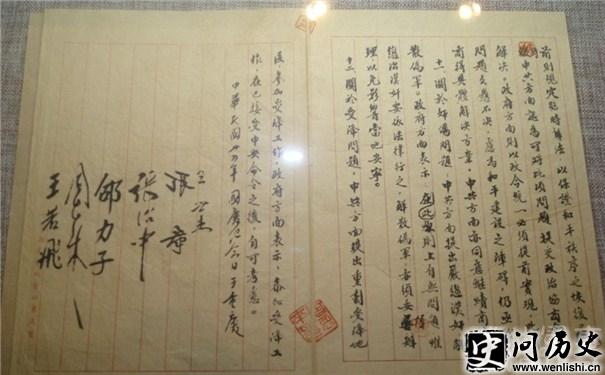 前則規定臨時辦法，以保證和平秩序之恢復
中共方面認為可將此項問題提交政治協商
解決。政府方面則以政令統一必須提前實現，此
問題久懸不決，慮為和平建設之障礙，仍亟
商得具體解決方案。中共方面亦同意繼續商
十一 關於奸偽問題，中共方面提出嚴懲漢奸解
散偽軍。政府方面表示，在此原則上自無問題，惟
懲治漢奸要依法律行之，解散偽軍亦須妥慎辦
理以免影響當地安寧。
十二 關於受降問題，中共方面提出重劃受降地
區參加受降工作。政府方面表示，參加受降工
作，在已接受中央命令之後，自可考慮。
中華民國卅四年國慶紀念日于重慶
王世杰
張羣
張治中
邵力子
周恩來
王若飛
问历史
www.wenlishi.cn